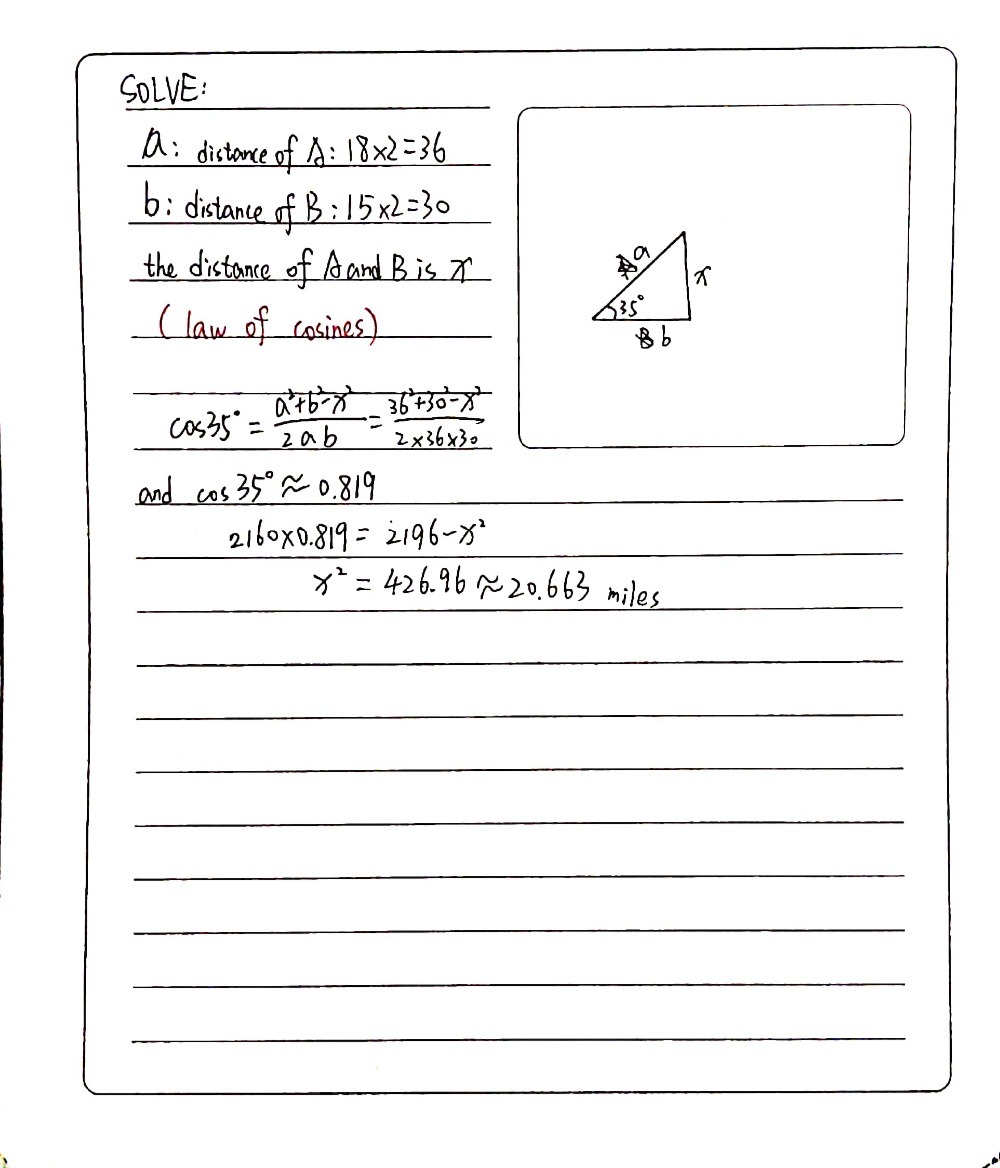 SOLVE:
a: distance of A: 18×2=36
b: distance of B: 15×2=30
the distance of A and B is x
(law of cosines)
cos35° = a²+b²-x² / 2ab = 36²+30²-x² / 2×36×30
and cos 35° ≈ 0.819
2160×0.819 = 2196-x²
x² = 426.96 ≈ 20.663 miles
a
x
35°
b